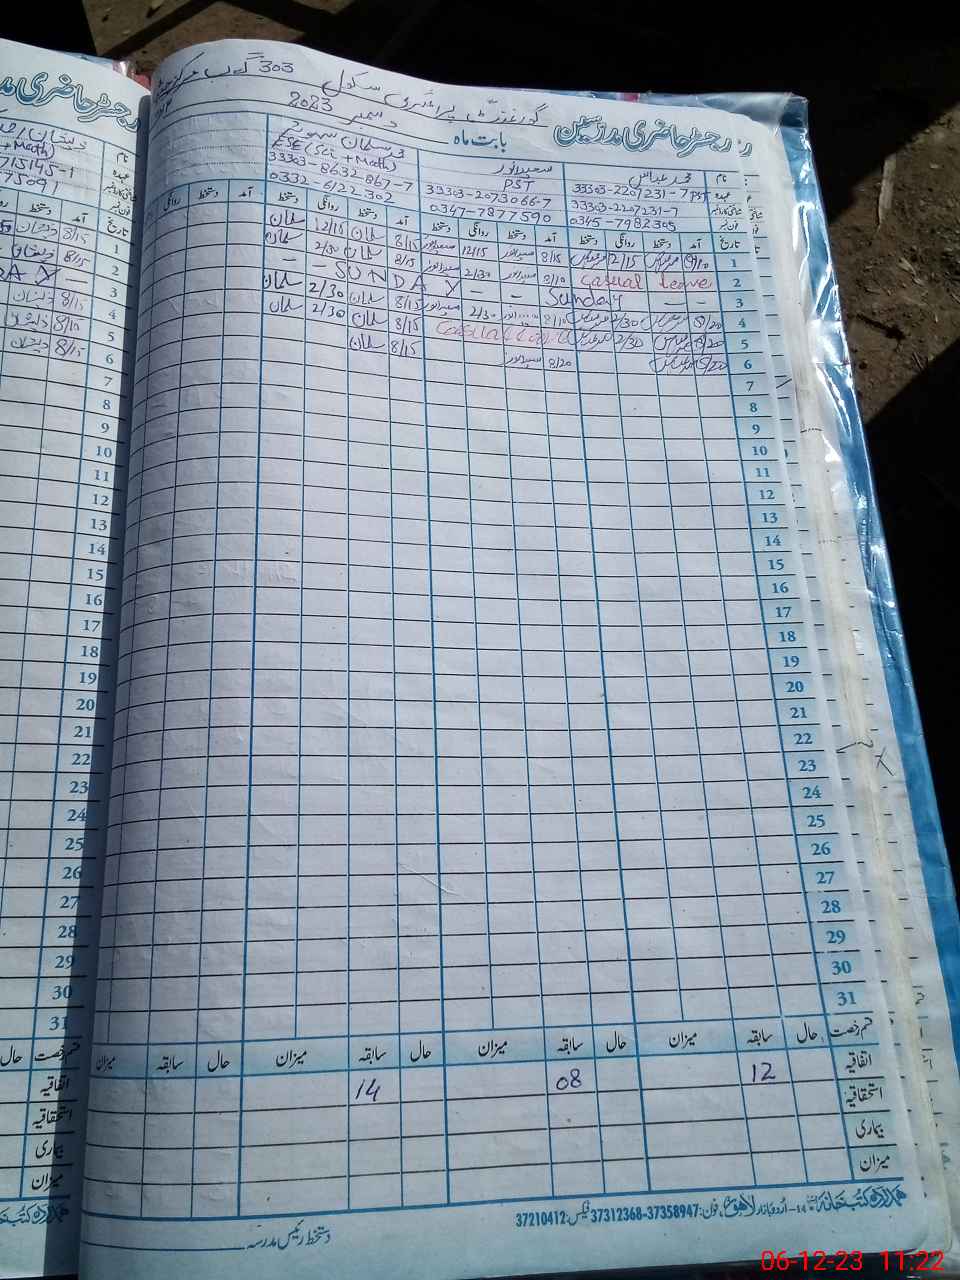 رجسٹر حاضری مدرسین
گورنمنٹ پرائمری سکول 303 گ ب
بابت ماہ دسمبر 2023
نام
محمد عباس
سعید انور
محمد سلمان
عہدہ
PST
PST
ESE (Sci + Math)
33303-2207231-7
33303-2207231-7
33303-2073066-7
33303-8632867-7
0345-7982305
0347-7877590
0332-6122302
تاریخ آمد دستخط روانگی دستخط آمد دستخط روانگی دستخط آمد دستخط روانگی دستخط آمد دستخط روانگی دستخط
1 8/10 2/15 8/15 12/15 8/15 سلمان 12/15 سلمان
2 Casual leave 8/10 2/30 8/15 سلمان 2/30 سلمان
3 - - Sunday - - - SUNDAY - -
4 8/20 2/30 8/10 2/30 8/15 سلمان 2/30 سلمان
5 8/20 2/30 Casual 8/15 سلمان 2/30 سلمان
6 8/20 8/20 8/15 سلمان
7
8
9
10
11
12
13
14
15
16
17
18
19
20
21
22
23
24
25
26
27
28
29
30
31
قسم رخصت حال سابقہ میزان حال سابقہ میزان حال سابقہ میزان حال سابقہ میزان
اتفاقیہ 12 08 14
استحقاقیہ
بیماری
میزان
ہمدرد کتب خانہ 14-اردو بازار لاہور، فون: 37358947-37312368 فیکس: 37210412
دستخط رئیس مدرسہ
رجسٹر حاضری
+ Math)
715145-1
75091
دستخط آمد تاریخ
8/15 1
8/15 2
DAY - 3
8/15 4
8/10 5
8/15 6
7
8
9
10
11
12
13
14
15
16
17
18
19
20
21
22
23
24
25
26
27
28
29
30
31
قسم رخصت حال
اتفاقیہ
استحقاقیہ
بیماری
میزان
ہمدرد کتب خانہ
06-12-23 11:22